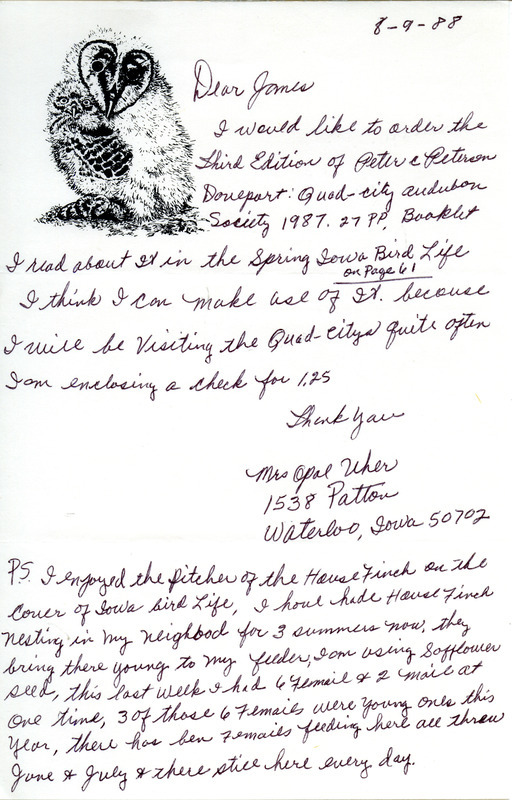 8-9-88
Dear James
I would like to order the
Third Edition of Peter C Petersen
Doneport: Quad-city audubon
Society 1987. 27 PP, Booklet
I read about It in the Spring Iowa Bird Life
on Page 61
I think I can make use of It. because
I will be Visiting the Quad-citys quite often
I am enclosing a check for 1.25
Thank You
Mrs Opal Uher
1538 Patton
Waterloo, Iowa 50702
P.S. I enjoyed the pitcher of the House Finch on the
Couer of Iowa bird Life, I haue hade House Finch
Nesting in My Neighbood for 3 summers now, they
bring there young to My feeder, I am using Safflower
seed, this last week I had 6 Femail & 2 Mail at
One time, 3 of those 6 Femails were young Ones this
Year, there has ben Femails feeding here all threw
June & July & there still here every day.